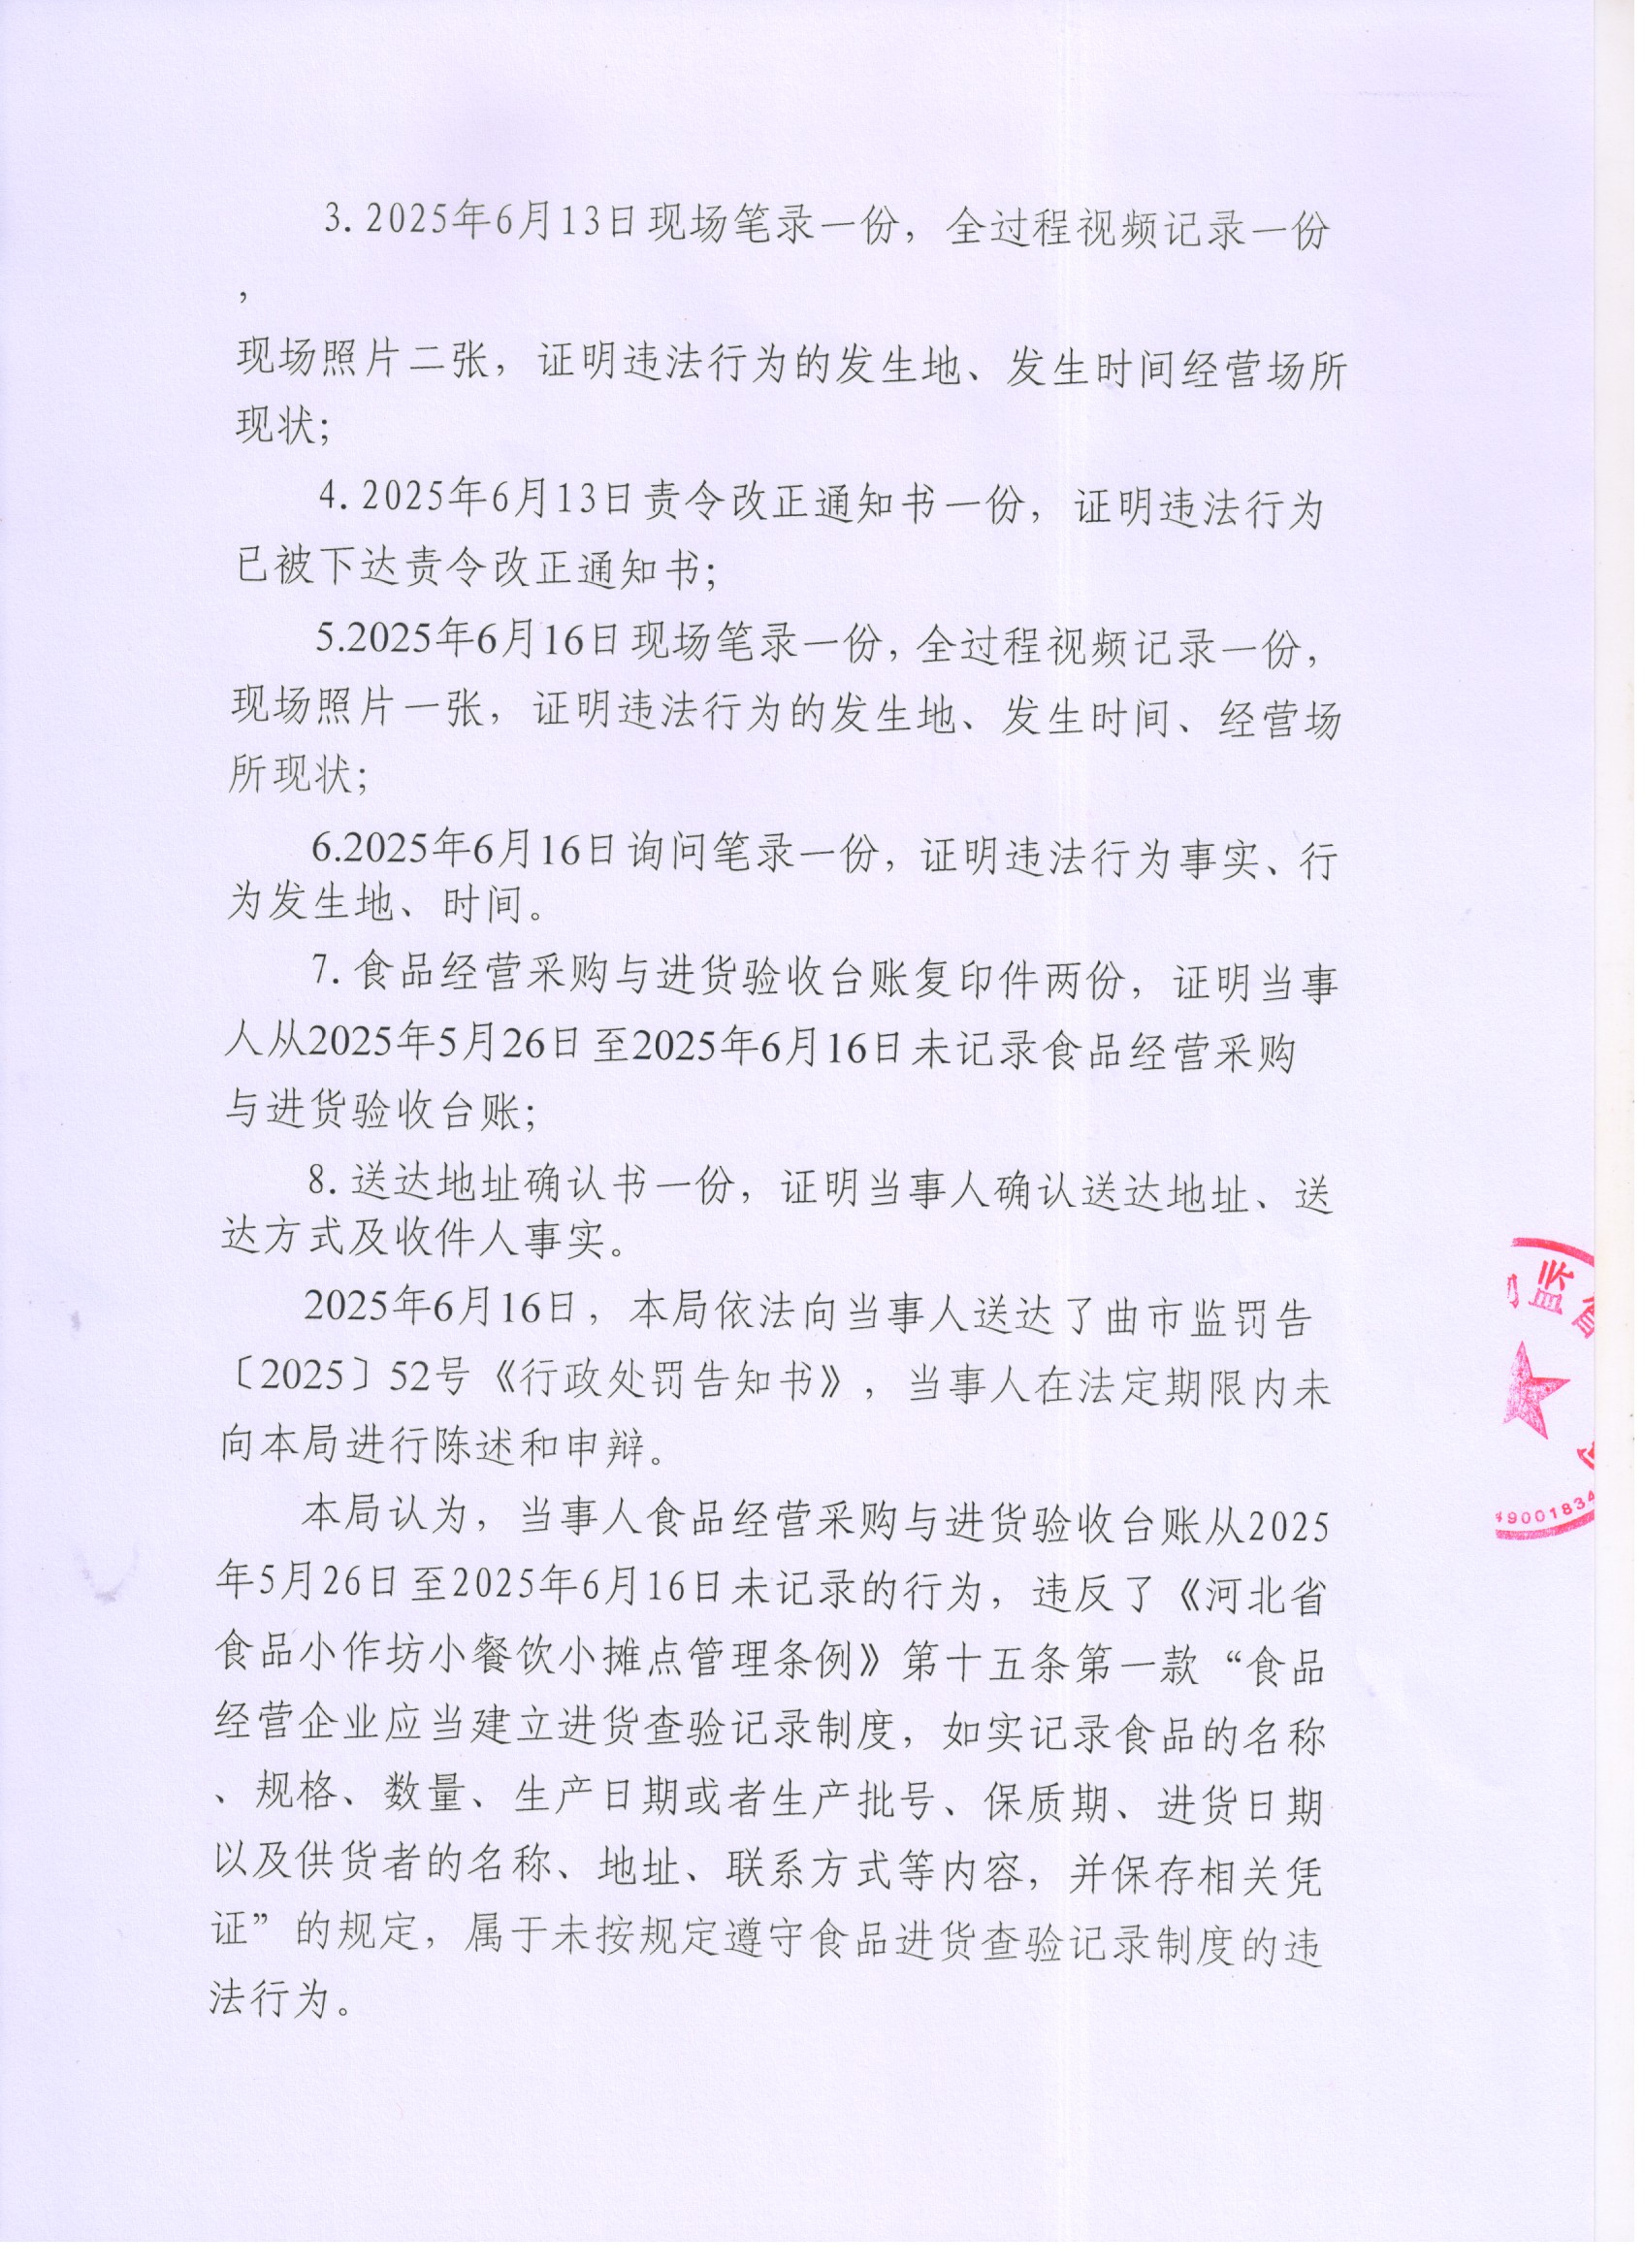 3. 2025年6月13日现场笔录一份，全过程视频记录一份
，
现场照片二张，证明违法行为的发生地、发生时间经营场所
现状；
4. 2025年6月13日责令改正通知书一份，证明违法行为
已被下达责令改正通知书；
5.2025年6月16日现场笔录一份，全过程视频记录一份，
现场照片一张，证明违法行为的发生地、发生时间、经营场
所现状；
6.2025年6月16日询问笔录一份，证明违法行为事实、行
为发生地、时间。
7. 食品经营采购与进货验收台账复印件两份，证明当事
人从2025年5月26日至2025年6月16日未记录食品经营采购
与进货验收台账；
8. 送达地址确认书一份，证明当事人确认送达地址、送
达方式及收件人事实。
2025年6月16日，本局依法向当事人送达了曲市监罚告
〔2025〕52号《行政处罚告知书》，当事人在法定期限内未
向本局进行陈述和申辩。
本局认为，当事人食品经营采购与进货验收台账从2025
年5月26日至2025年6月16日未记录的行为，违反了《河北省
食品小作坊小餐饮小摊点管理条例》第十五条第一款“食品
经营企业应当建立进货查验记录制度，如实记录食品的名称
、规格、数量、生产日期或者生产批号、保质期、进货日期
以及供货者的名称、地址、联系方式等内容，并保存相关凭
证”的规定，属于未按规定遵守食品进货查验记录制度的违
法行为。
监
9001834